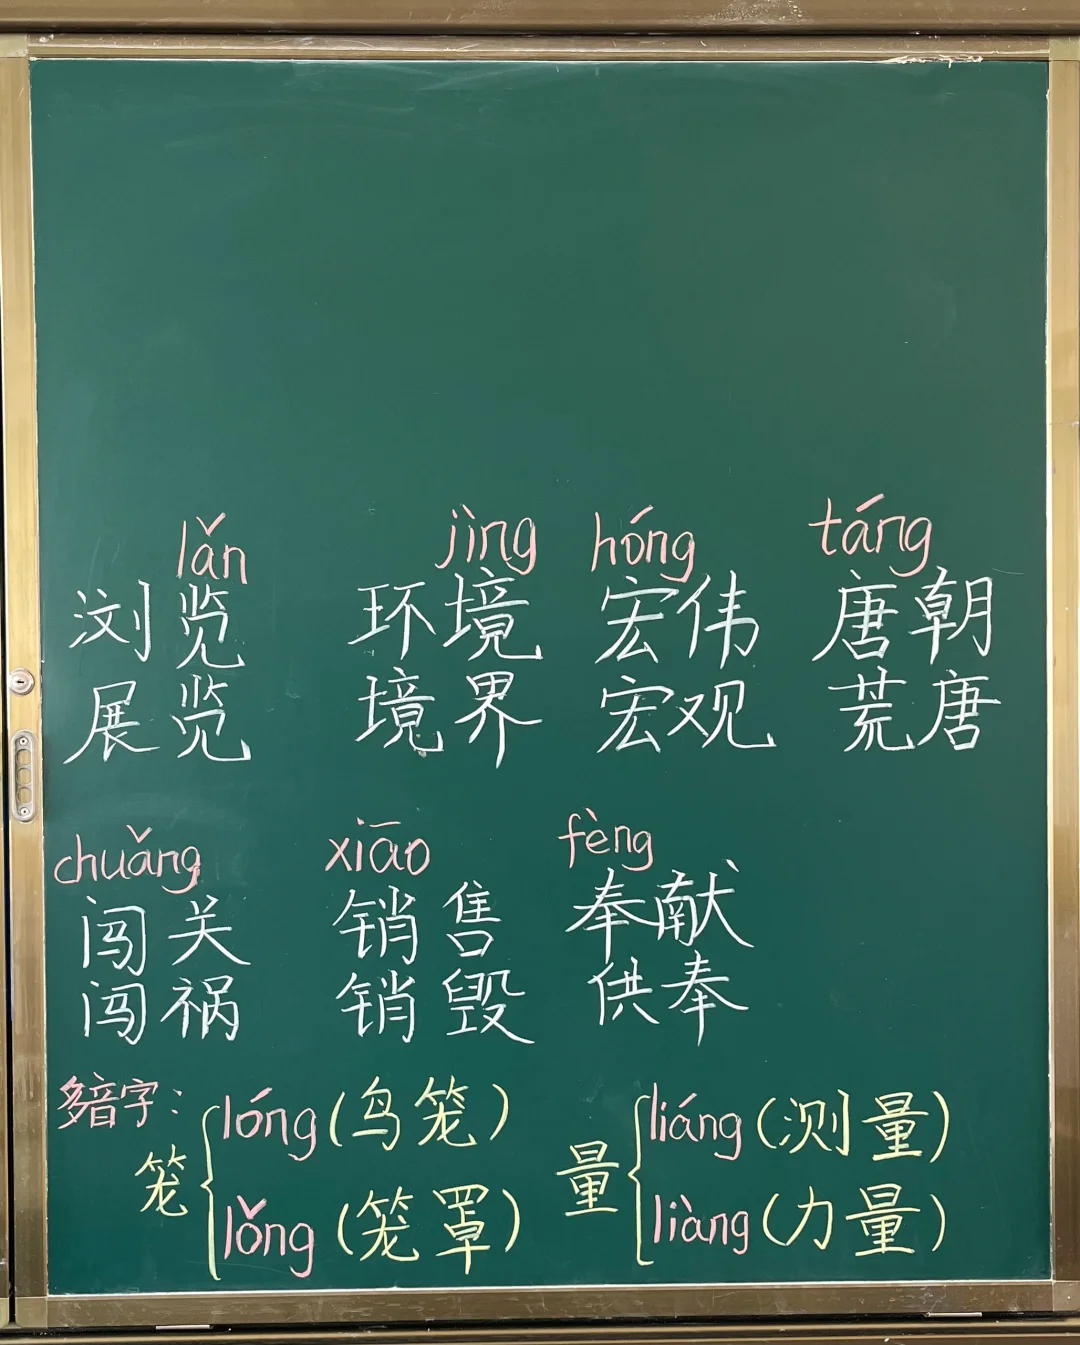 lǎn jìng hóng táng
浏览 环境 宏伟 唐朝
展览 境界 宏观 荒唐
chuǎng xiāo fèng
闯关 销售 奉献
闯祸 销毁 供奉
多音字：
笼 lóng（鸟笼） 量 liáng（测量）
lǒng（笼罩） liàng（力量）